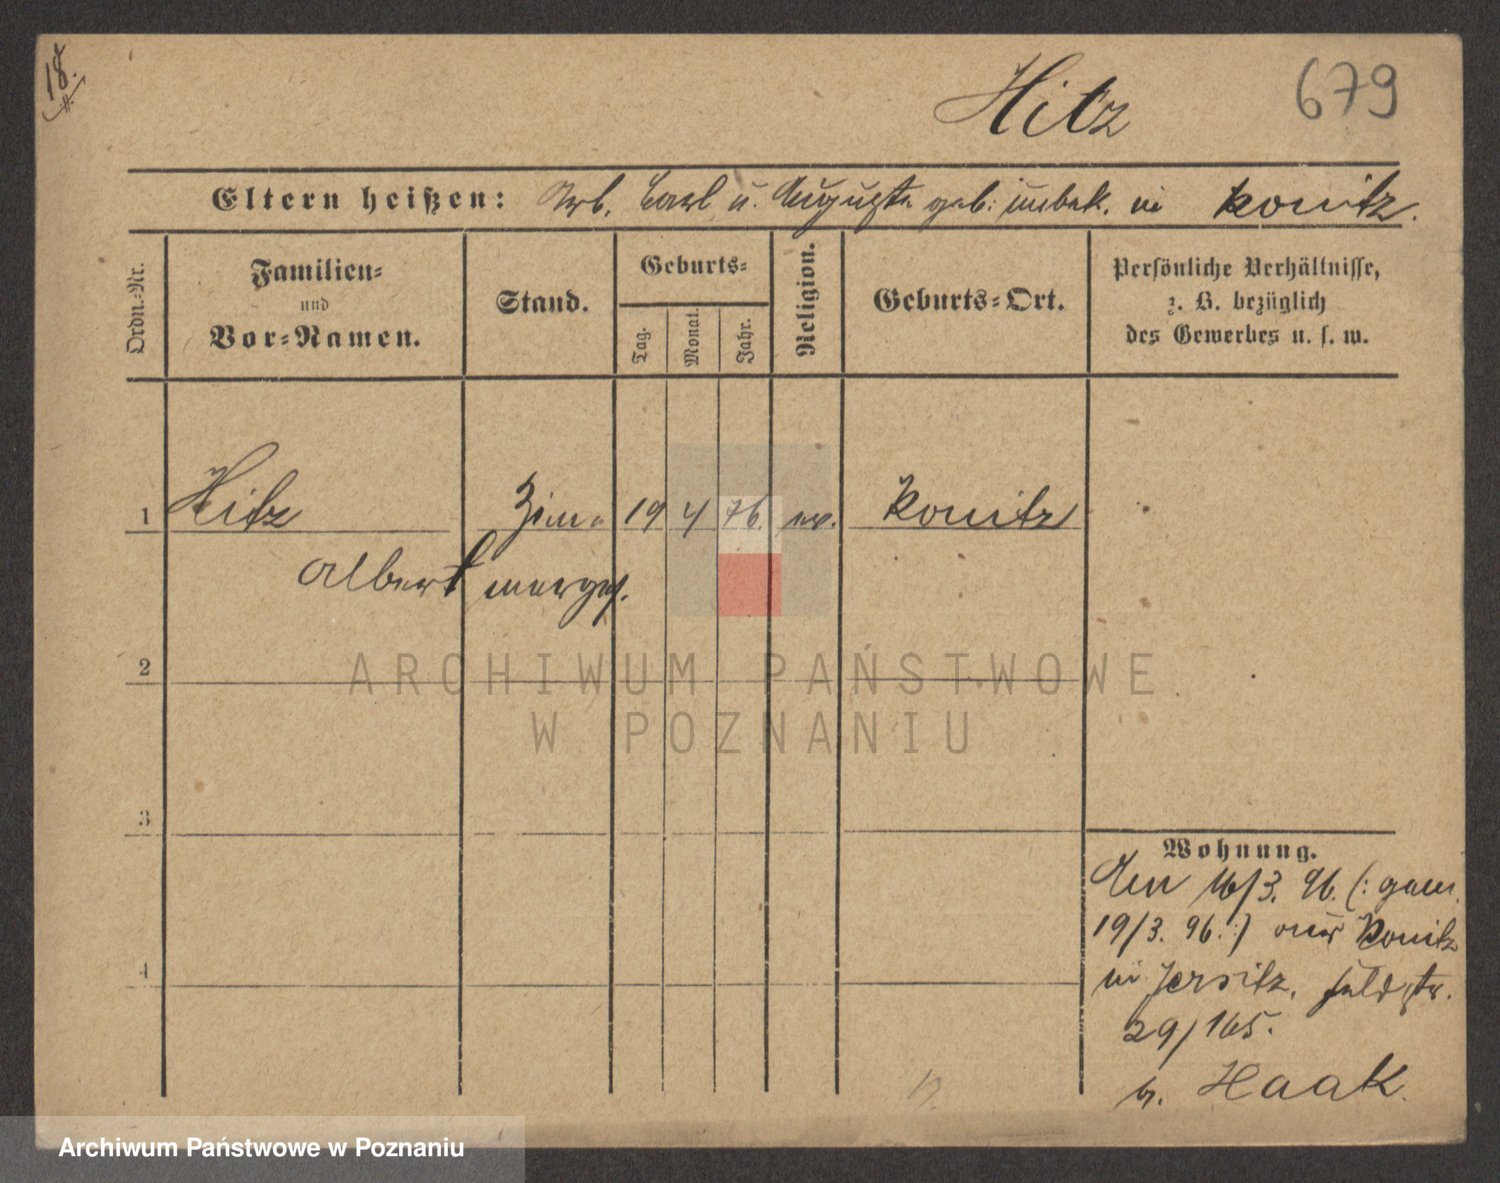 18.
Hitz 679
Eltern heißen: Arb. Carl u. Auguste geb. unbek. in Konitz.
Ordn.-Nr.
Familien-
und
Vor-Namen.
Stand.
Geburts-
Tag.
Monat.
Jahr.
Religion.
Geburts-Ort.
Persönliche Verhältnisse,
z. B. bezüglich
des Gewerbes u. s. w.
1 Hitz Zim- 19 4 76. ev. Konitz
Albert merges.
2
3
4
Wohnung.
Am 16/3. 96. (: gem.
19/3. 96. :) aus Konitz
in Jersitz, Feldstr.
29/165.
b. Haak.
ARCHIWUM PAŃSTWOWE
W POZNANIU
Archiwum Państwowe w Poznaniu